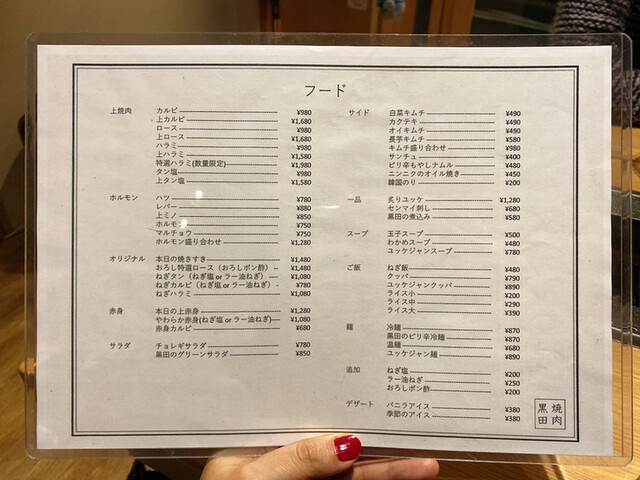 フード
上焼肉 カルビ ¥980
上カルビ ¥1,680
ロース ¥980
上ロース ¥1,680
ハラミ ¥980
上ハラミ ¥1,580
特選ハラミ(数量限定) ¥1,980
タン塩 ¥980
上タン塩 ¥1,580
ホルモン ハツ ¥780
レバー ¥880
上ミノ ¥850
ホルモン ¥750
マルチョウ ¥750
ホルモン盛り合わせ ¥1,280
オリジナル 本日の焼きすき ¥1,480
おろし特選ロース（おろしポン酢） ¥1,480
ねぎタン（ねぎ塩 or ラー油ねぎ） ¥1,080
ねぎカルビ（ねぎ塩 or ラー油ねぎ） ¥780
ねぎハラミ ¥1,080
赤身 本日の上赤身 ¥1,280
やわらか赤身(ねぎ塩 or ラー油ねぎ) ¥1,080
赤身カルビ ¥680
サラダ チョレギサラダ ¥780
黒田のグリーンサラダ ¥850
サイド 白菜キムチ ¥490
カクテキ ¥490
オイキムチ ¥490
長芋キムチ ¥580
キムチ盛り合わせ ¥980
サンチュ ¥400
ピリ辛もやしナムル ¥480
ニンニクのオイル焼き ¥450
韓国のり ¥200
一品 炙りユッケ ¥1,280
センマイ刺し ¥680
黒田の煮込み ¥580
スープ 玉子スープ ¥500
わかめスープ ¥480
ユッケジャンスープ ¥780
ご飯 ねぎ飯 ¥480
クッパ ¥790
ユッケジャンクッパ ¥890
ライス小 ¥200
ライス中 ¥290
ライス大 ¥390
麺 冷麺 ¥870
黒田のピリ辛冷麺 ¥870
温麺 ¥680
ユッケジャン麺 ¥890
追加 ねぎ塩 ¥200
ラー油ねぎ ¥250
おろしポン酢 ¥200
デザート バニラアイス ¥380
季節のアイス ¥380
焼肉
黒田